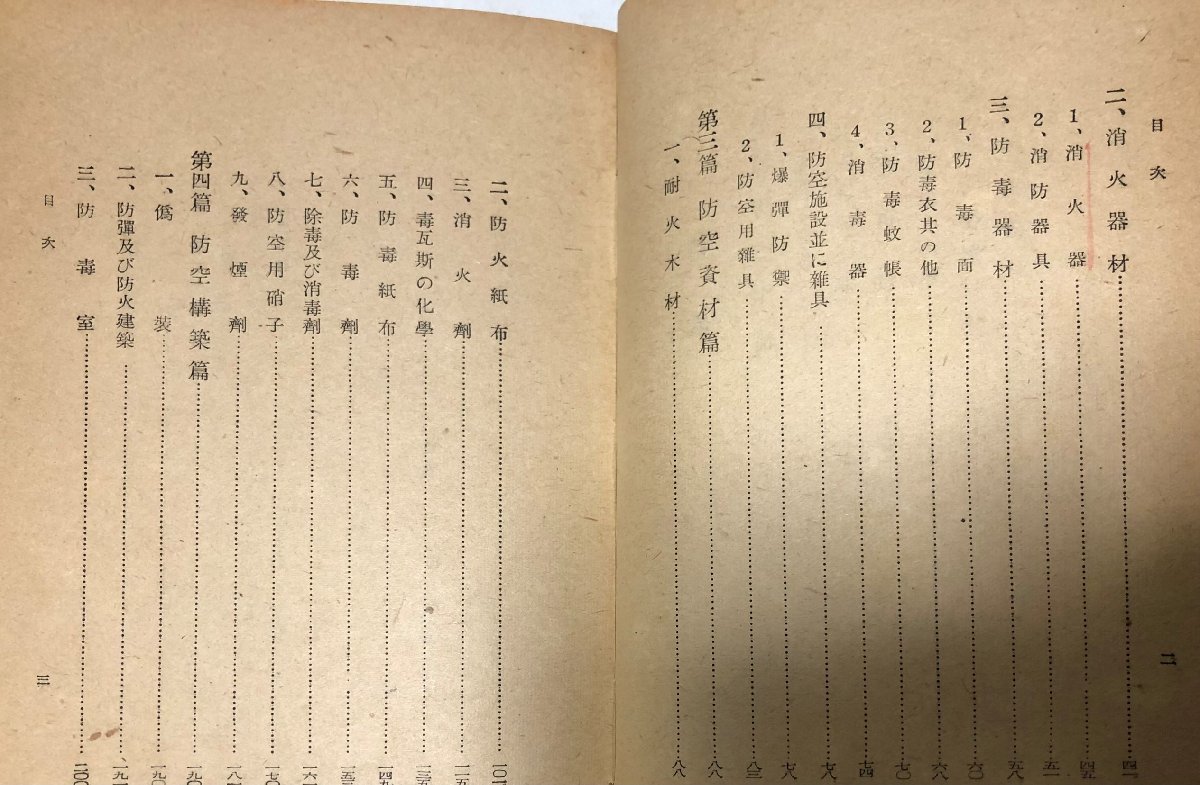 目次
二、消火器材……四一
1、消火器……四五
2、消防器具……五一
三、防毒器材……五八
1、防毒面……六〇
2、防毒衣其の他……六八
3、防毒蚊帳……七〇
4、消毒器……七四
四、防空施設並に雜具……七八
1、爆彈防禦……七八
2、防空用雜具……八三
第三篇 防空資材篇……八八
一、耐火木材……八八
二
二、防火紙布……一〇一
三、消火劑……一一五
四、毒瓦斯の化學……
五、防毒紙布……一四九
六、防毒劑……
七、除毒及び消毒劑……一六一
八、防空用硝子……一七〇
九、發煙劑……一八一
第四篇 防空構築篇……一九〇
一、僞裝……一九〇
二、防彈及び防火建築……一九一
三、防毒室……二〇〇
目次
三